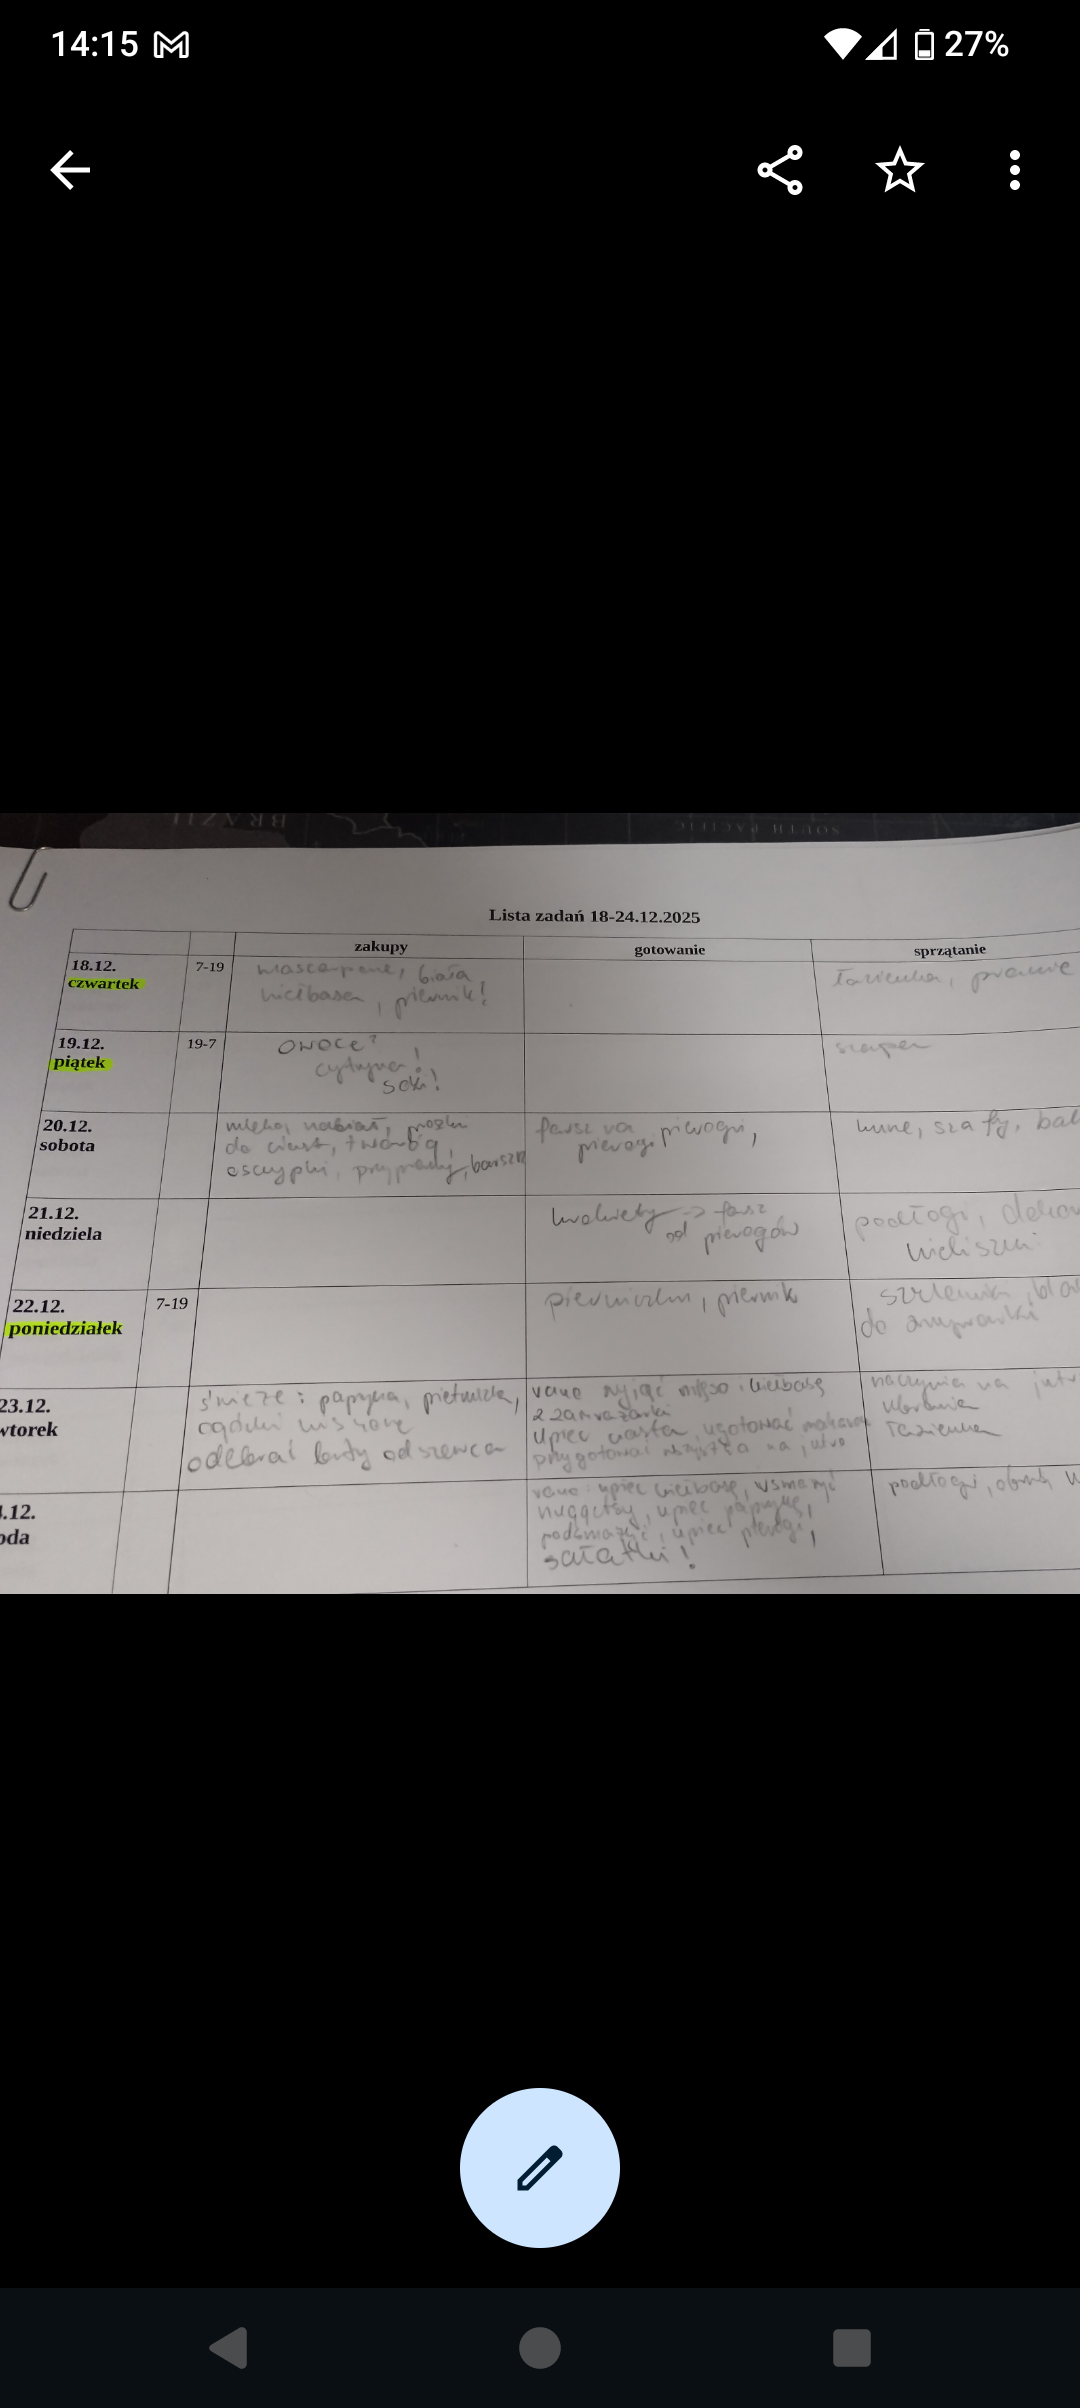 14:15
27%
BRAZIL
SOUTH PACIFIC
Lista zadań 18-24.12.2025
zakupy gotowanie sprzątanie
18.12.
czwartek
7-19
mascarpone, biała
kiełbasa, piernik!
łazienka, pranie
19.12.
piątek
19-7
owoce?
cytryna!
soki!
20.12.
sobota
mleko, nabiał, proszki
do ciast, twaróg,
oscypki, przyprawy, barszcz
farsz na
pierogi, pierogi,
szafy,
21.12.
niedziela
krokiety -> farsz
od pierogów
podłogi,
kieliszki
22.12.
poniedziałek
7-19
pierniczki, piernik
szklanki,
do zmywarki
23.12.
wtorek
świeże: papryka, pietruszka,
ogórki kiszone
odebrać buty od szewca
rano wyjąć mięso i kiełbasę
z zamrażarki
upiec ciasta, ugotować makaron
przygotować wszystko na jutro
naczynia na
ubrania
łazienka
.12.
oda
rano: upiec kiełbasę, usmażyć
nuggetsy, upiec paprykę,
podsmażyć, upiec pierogi,
sałatki!
podłogi,